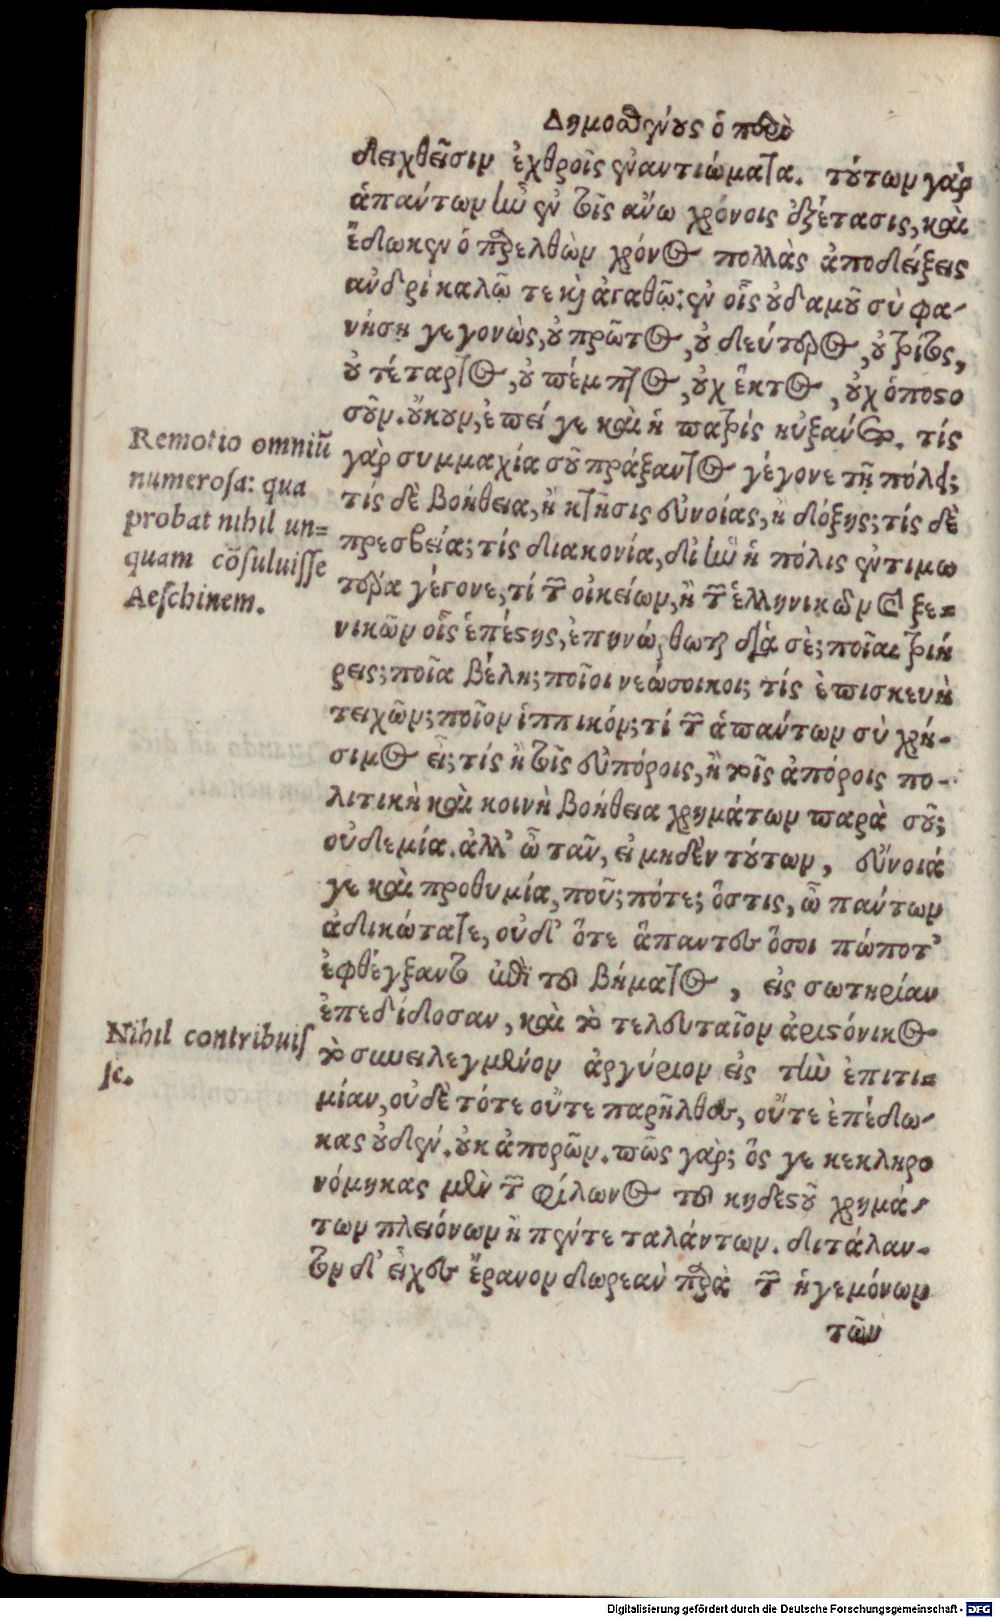 Δημοσθένους ὁ περὶ
δειχθεῖσιν ἐχθροῖς ἐναντιώματα. τούτων γὰρ
ἁπάντων ἦν ἐν τοῖς ἄνω χρόνοις ἐξέτασις, καὶ
ἔδωκεν ὁ παρελθὼν χρόνος πολλὰς ἀποδείξεις
ἀνδρὶ καλῷ τε κἀγαθῷ: ἐν οἷς οὐδαμοῦ σὺ φα-
νήσῃ γεγονὼς, οὐ πρῶτος, οὐ δεύτερος, οὐ τρίτος,
οὐ τέταρτος, οὐ πέμπτος, οὐχ ἕκτος, οὐχ ὁποσο
σοῦν. οὔκουν, ἐπεί γε καὶ ἡ πατρὶς ηὐξάνετο. τίς
γὰρ συμμαχία σοῦ πράξαντος γέγονε τῇ πόλει;
τίς δὲ βοήθεια, ἢ κτῆσις εὐνοίας, ἢ δόξης; τίς δὲ
πρεσβεία; τίς διακονία, δι' ἣν ἡ πόλις ἐντιμω
τέρα γέγονε, τί τῶν οἰκείων, ἢ τῶν ἑλληνικῶν καὶ ξε-
νικῶν οἷς ἐπέστης, ἐπηνώρθωται διὰ σὲ; ποῖαι τριή
ρεις; ποῖα βέλη; ποῖοι νεώσοικοι; τίς ἐπισκευὴ
τειχῶν; ποῖον ἱππικόν; τί τῶν ἁπάντων σὺ χρή-
σιμος εἶ; τίς ἢ τοῖς εὐπόροις, ἢ τοῖς ἀπόροις πο-
λιτικὴ καὶ κοινὴ βοήθεια χρημάτων παρὰ σοῦ;
οὐδεμία. ἀλλ' ὦ ταν, εἰ μηδὲν τούτων, εὔνοιά
γε καὶ προθυμία, ποῦ; πότε; ὅστις, ὦ πάντων
ἀδικώτατε, οὐδ' ὅτε ἅπαντες ὅσοι πώποτ'
ἐφθέγξαντο ἐπὶ τοῦ βήματος, εἰς σωτηρίαν
ἐπεδίδοσαν, καὶ τὸ τελευταῖον ἀριστόνικος
τὸ συνειλεγμένον ἀργύριον εἰς τὴν ἐπιτι-
μίαν, οὐδὲ τότε οὔτε παρῆλθες, οὔτε ἐπέδω-
κας οὐδέν. οὐκ ἀπορῶν. πῶς γὰρ; ὅς γε κεκληρο
νόμηκας μὲν τῶν φίλωνος τοῦ κηδεστοῦ χρημά-
των πλειόνων ἢ πέντε ταλάντων. διτάλαν-
τον δ' εἶχες ἔρανον δωρεὰν παρὰ τῶν ἡγεμόνων
τῶν
Remotio omniū
numerosa: qua
probat nihil un=
quam cōsuluisse
Aeschinem.
Nihil contribuis
se.
Digitalisierung gefördert durch die Deutsche Forschungsgemeinschaft - DFG